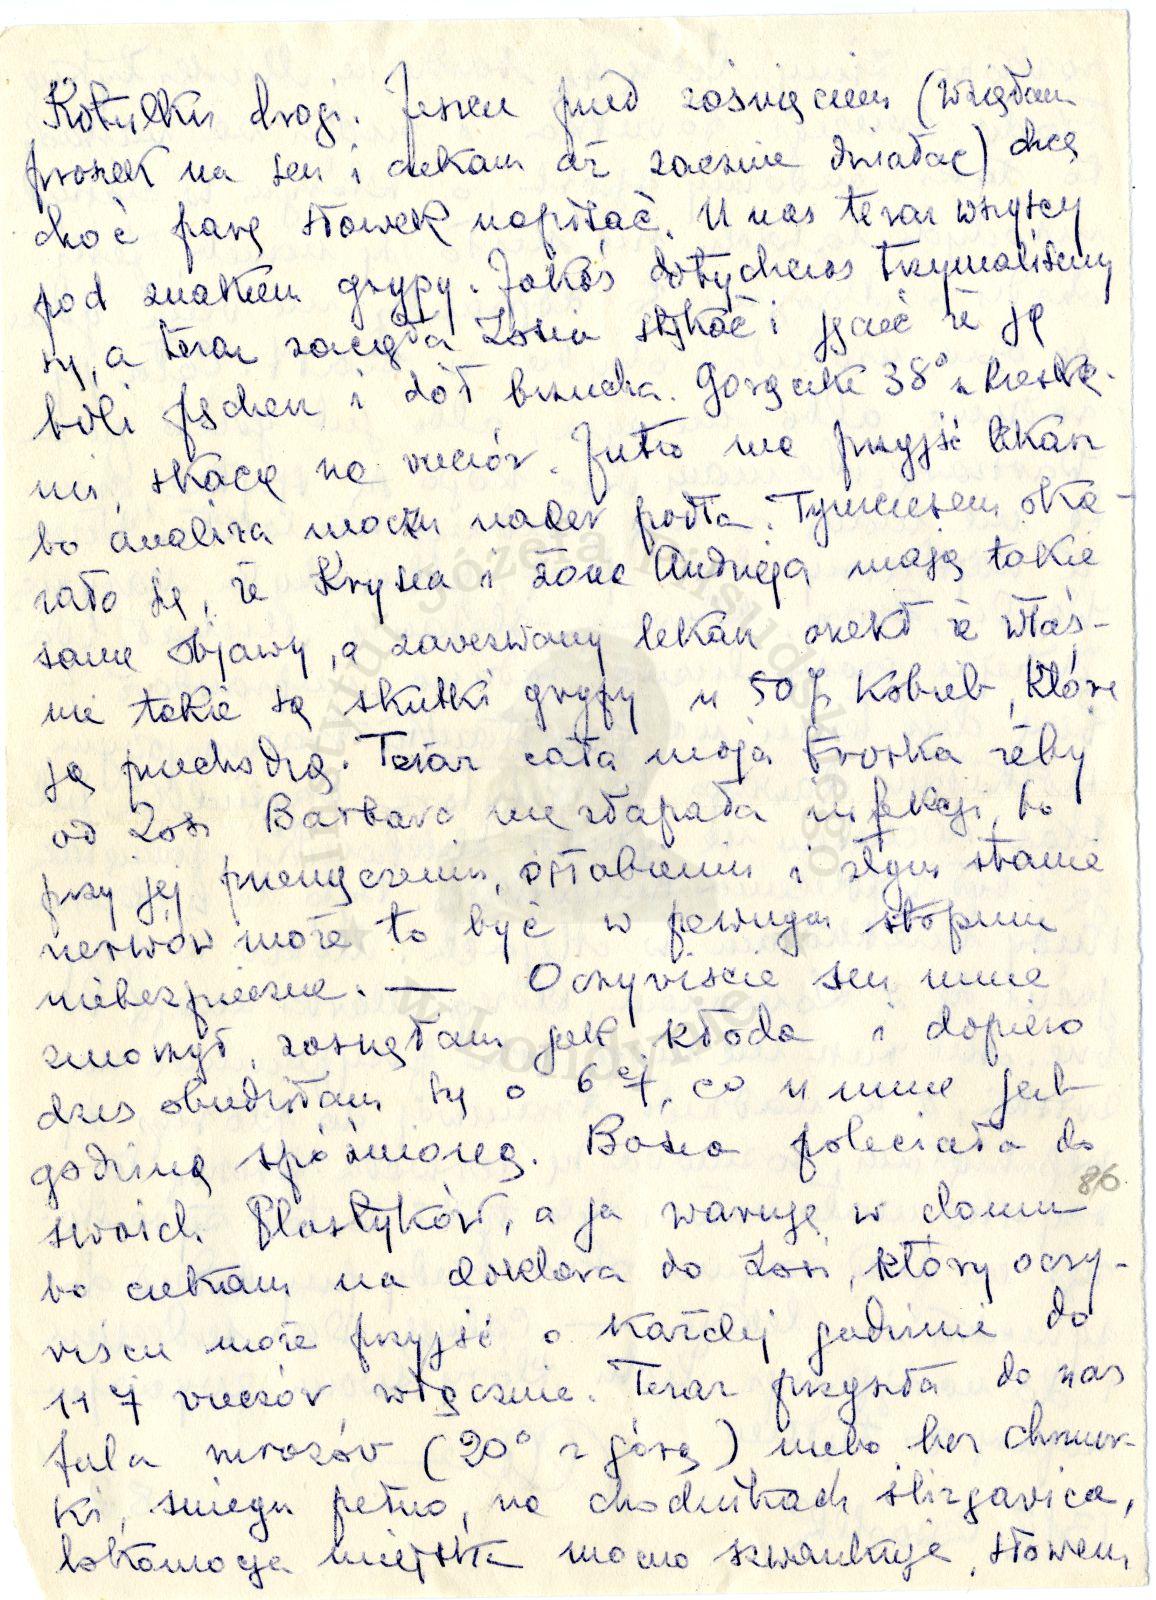 Kotulku drogi. Jeszcze przed zaśnięciem (wzięłam
proszek na sen i czekam aż zacznie działać) chcę
choć parę słówek napisać. U nas teraz wszyscy
pod znakiem grypy. Jakoś dotychczas trzymaliśmy
się, a teraz zaczęła Zosia stękać i jęczeć że ją
boli pęcherz i dół brzucha. Gorączki 38° z kreska-
mi, skaczą na wieczór. Jutro ma przyjść lekarz
bo analiza moczu nader podła. Tymczasem oka-
zało się, że Krysia i żona Andrzeja mają takie
same objawy, a zawezwany lekarz orzekł że właś-
nie takie są skutki grypy u 50% kobiet, które
ją przechodzą. Teraz cała moja troska żeby
od Zosi Barbara nie złapała infekcji, bo
przy jej przemęczeniu, osłabieniu i złym stanie
nerwów może to być w pewnym stopniu
niebezpieczne. — Oczywiście sen mnie
zmorzył, zasnęłam jak kłoda i dopiero
dziś obudziłam się o 6ej, co u mnie jest
godziną spóźnioną. Basia poleciała do
swoich Plastyków, a ja waruję w domu
bo czekam na doktora do Zosi, który oczy-
wiście może przyjść o każdej godzinie do
11 7 wieczór włącznie. Teraz przyszła do nas
fala mrozów (20° z górą) niebo bez chmur-
ki, śniegu pełno, na chodnikach ślizgawica,
lokomocja miejska mocno szwankuje, słowem
86
Instytut Józefa Piłsudskiego
w Londynie